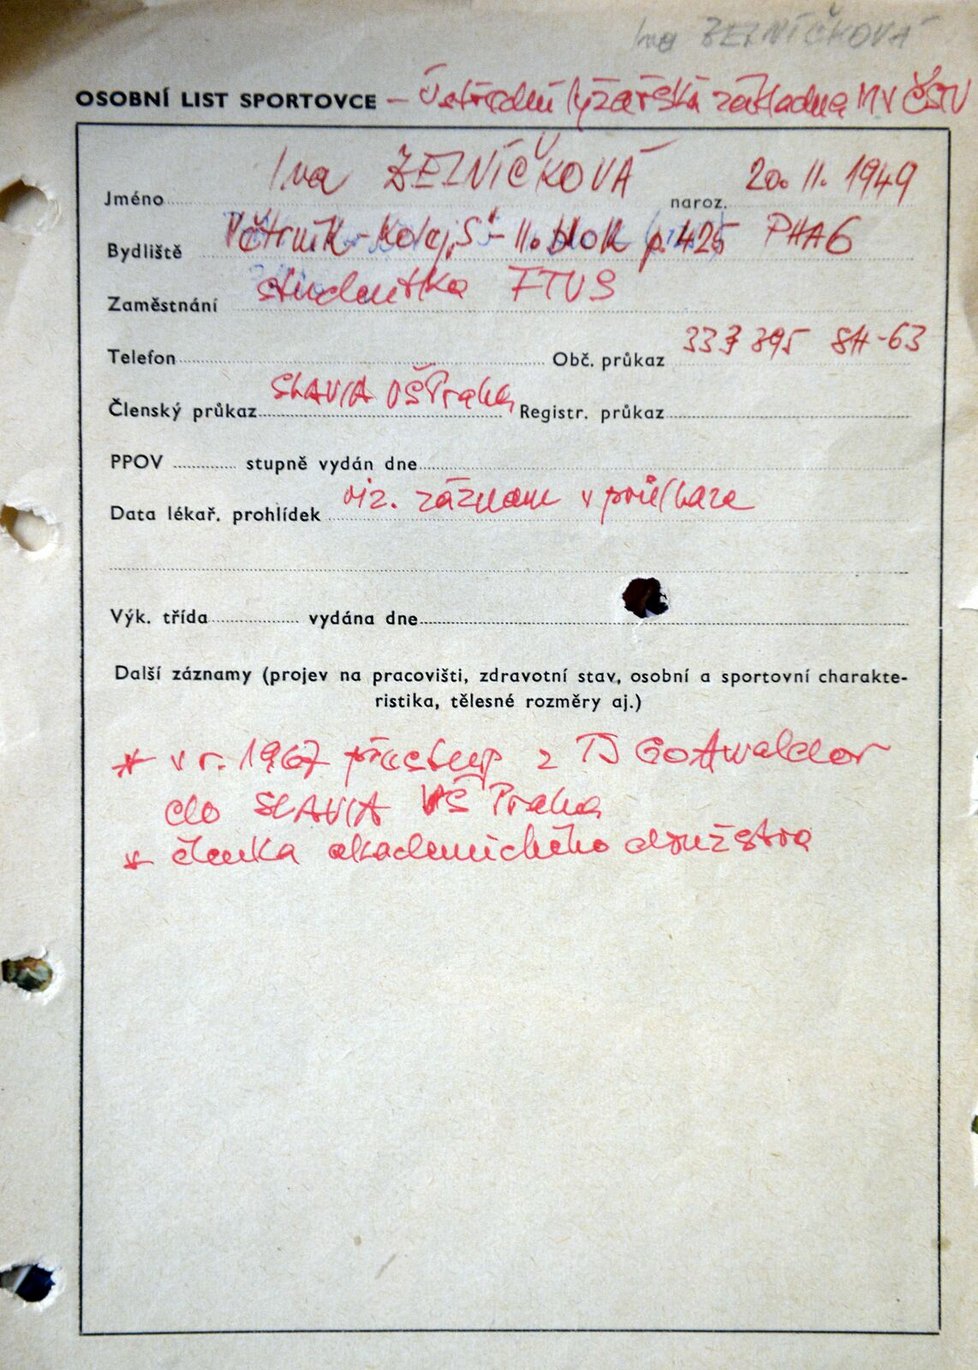 Iva ZELNÍČKOVÁ
OSOBNÍ LIST SPORTOVCE – Ústřední lyžařská základna MV ČSTV
Jméno Iva ZELNÍČKOVÁ naroz. 20. 11. 1949
Bydliště Větrník - Kolej - II. blok p. 425 PHA 6
Zaměstnání studentka FTVS
Telefon Obč. průkaz 395 SH-63
Členský průkaz SLAVIA VŠ Praha Registr. průkaz
PPOV stupně vydán dne
Data lékař. prohlídek viz. záznam v průkaze
Výk. třída vydána dne
Další záznamy (projev na pracovišti, zdravotní stav, osobní a sportovní charakte-
ristika, tělesné rozměry aj.)
* v r. 1967 přestup z TJ Gottwaldov
do SLAVIA VŠ Praha
* členka akademického družstva